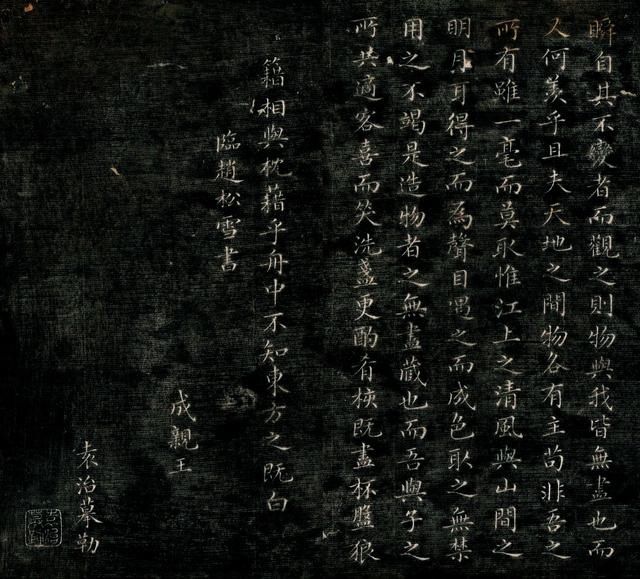 瞬自其不變者而觀之則物與我皆無盡也而
又何羨乎且夫天地之間物各有主苟非吾之
所有雖一毫而莫取惟江上之清風與山間之
明月耳得之而為聲目遇之而成色取之無禁
用之不竭是造物者之無盡藏也而吾與子之
所共適客喜而笑洗盞更酌肴核既盡杯盤狼
籍相與枕藉乎舟中不知東方之既白
臨趙松雪書
成親王
袁治摹勒